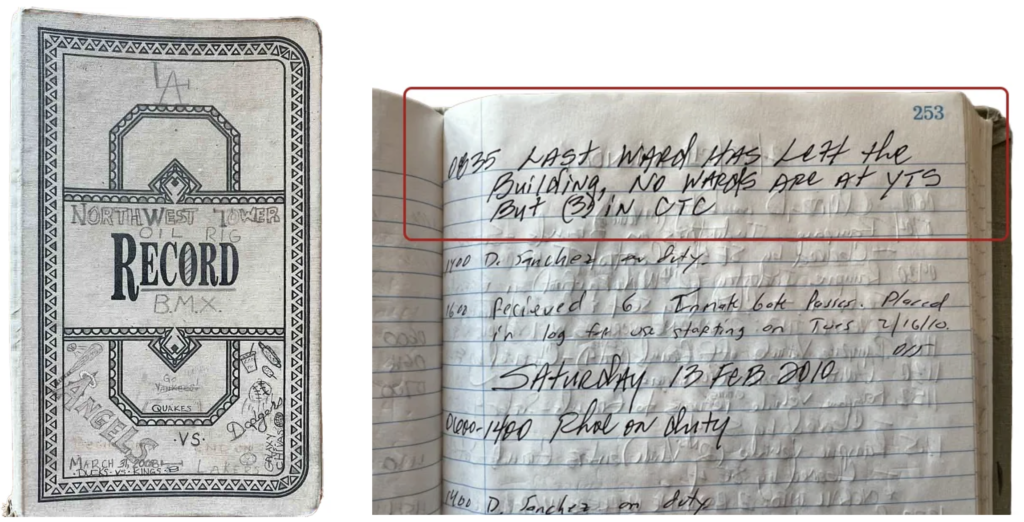 LA
NORTHWEST TOWER
OIL RIG
RECORD
B.M.X.
GO
YANKEES
QUAKES
ANGELS
Dodgers
GALAXY
CHIVAS
VS.
MARCH 31, 2008
DUCKS VS KINGS
LAKERS
253
0835 LAST WARD HAS LEFT the
Building, NO WARDS ARE AT YTS
But (3) iN CTC
1400 D. Sanchez on duty.
1600 Recieved 16 Inmate Passes. Placed
in log for use starting on Tues 2/16/10.
SATURDAY 13 FEB 2010
0600-1400 on duty
1400 D. Sanchez on duty